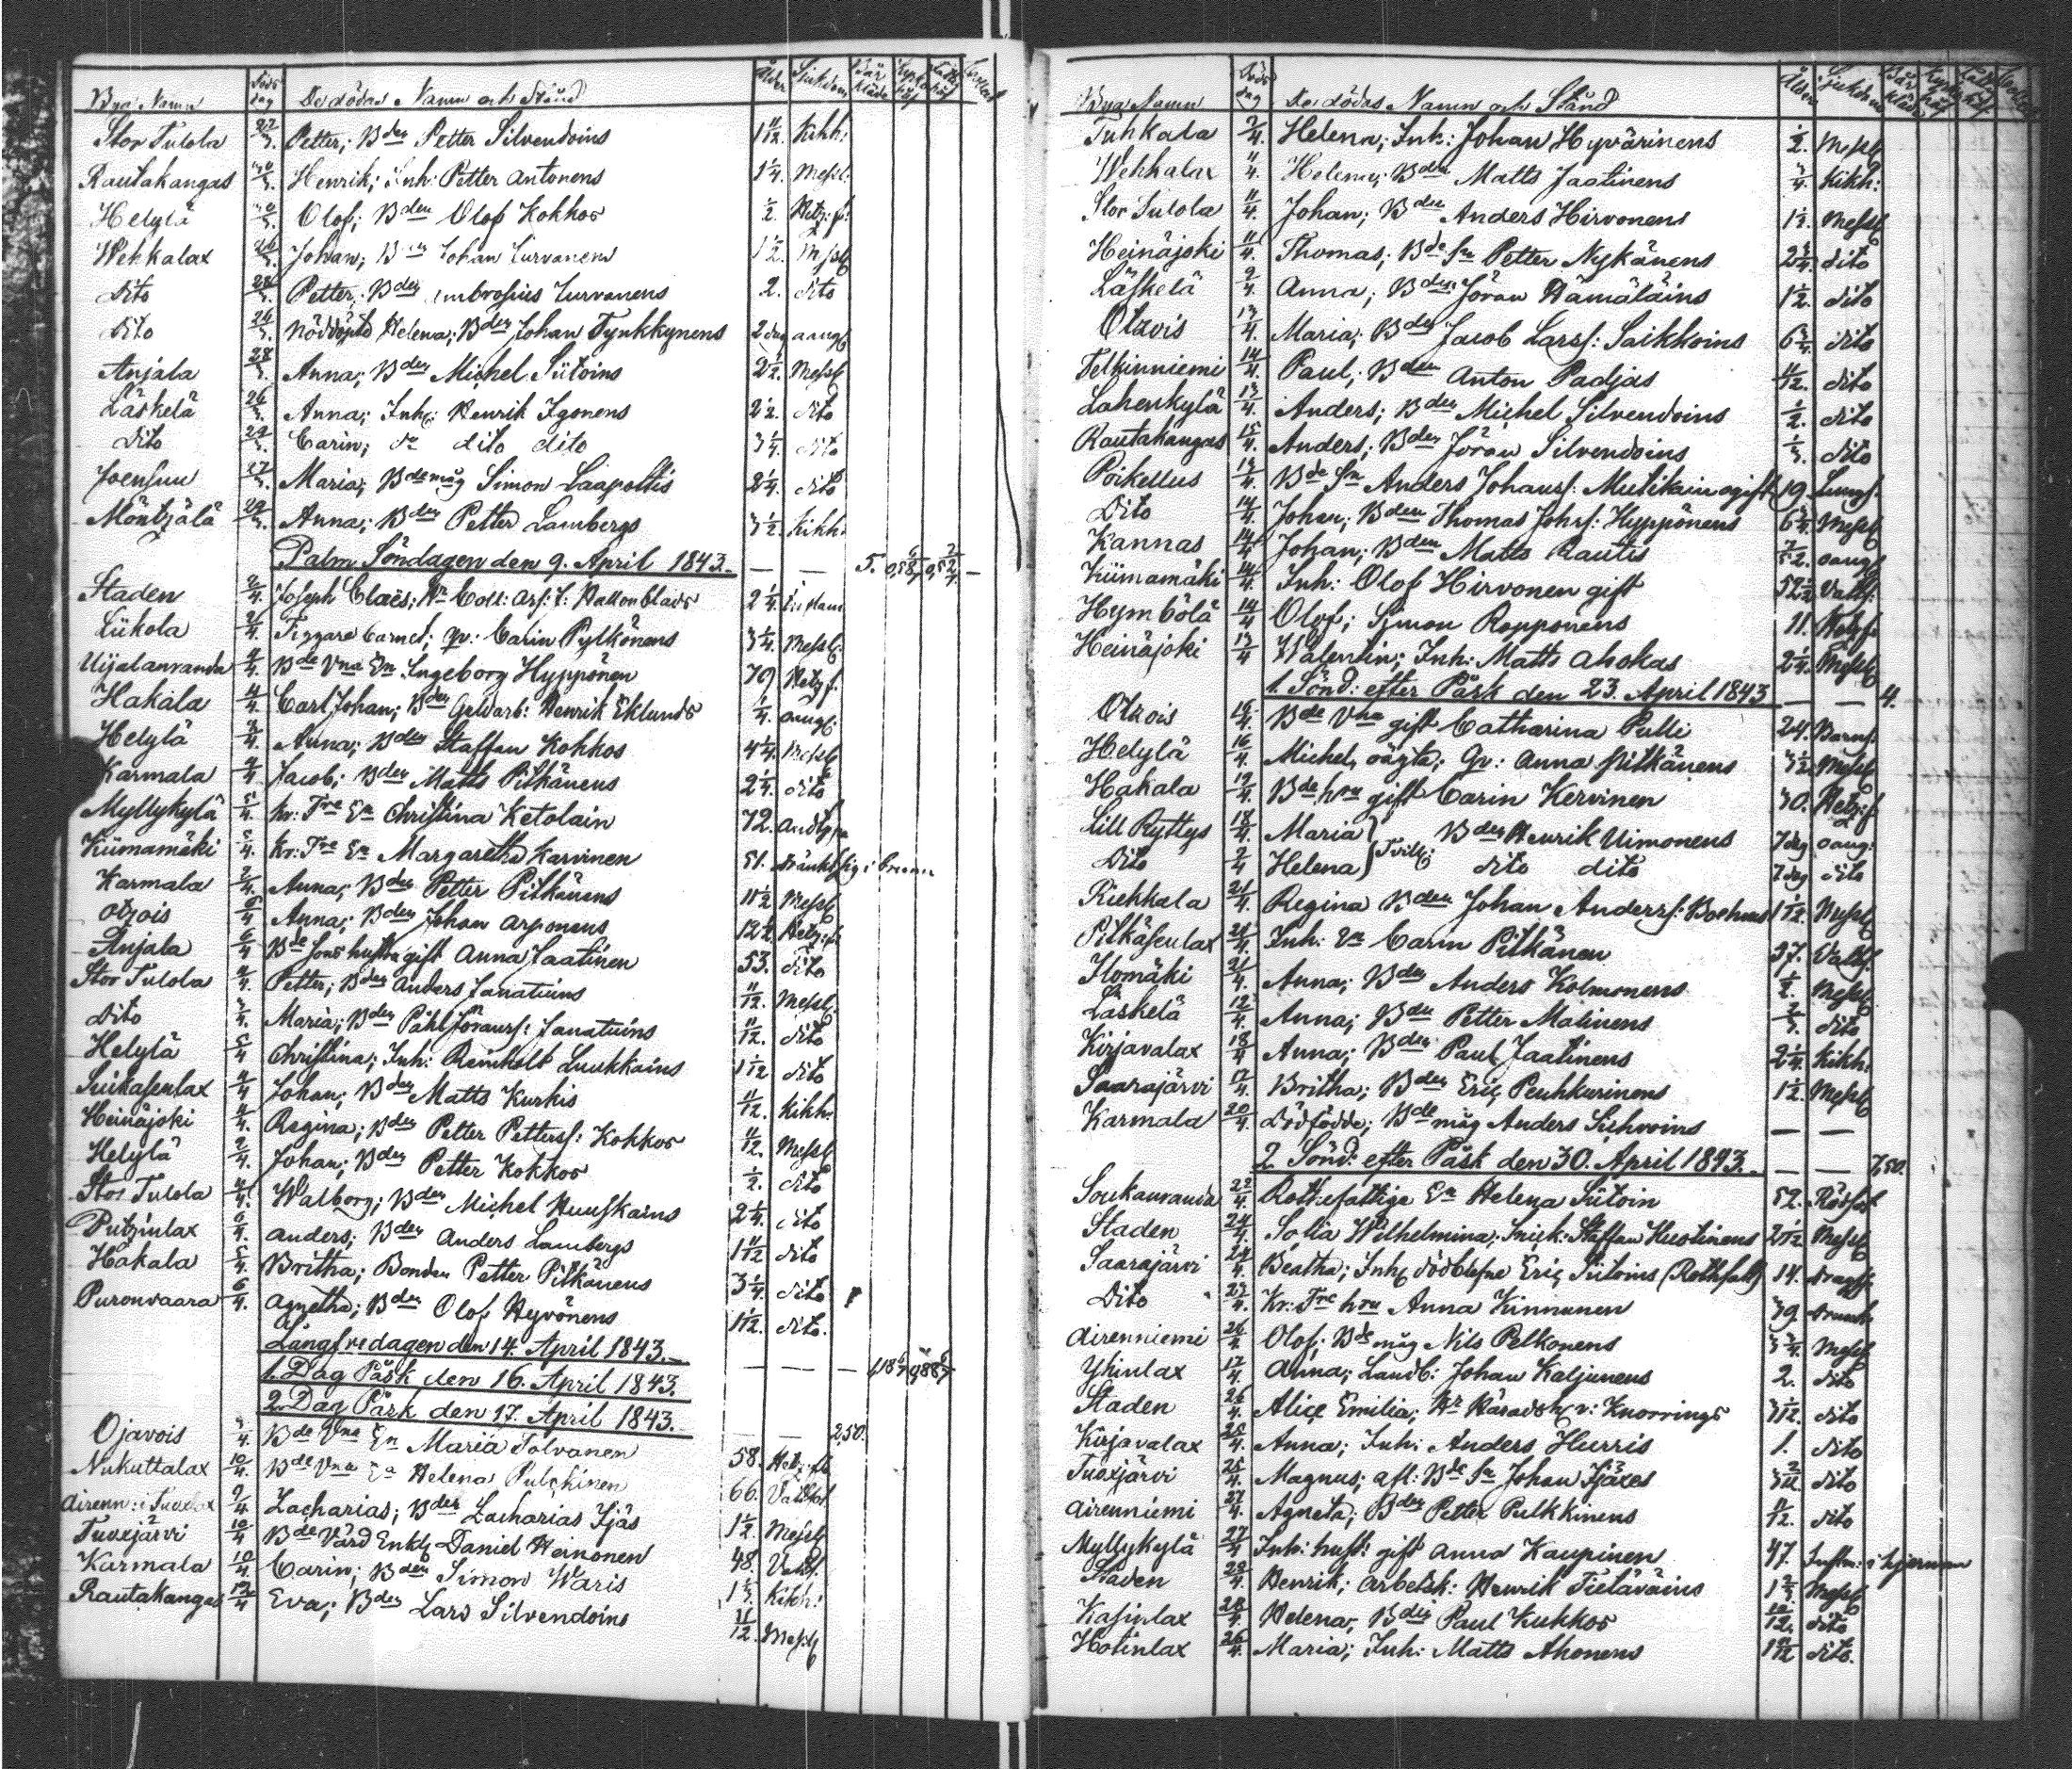 Bya Namn Döds dag De dödas Namn och Stånd Ålder Sjukdom Bår kläde
Stor Tulola 27/3. Petter; Bden Petter Silvendoins 1 11/12. Kikh:
Rautakangas Henrik; Inh: Petter Antonens 1 1/4. Messl:
Helylä Olof; Bden Olof Kokkos 1/2. Hetz: f:
Wekkalax 26/3. Johan; Bden Johan Turvanens 1 1/2. Messl
Dito 28/3. Petter; Bden Ambrosius Turvanens 2. dito
Dito 26/3. Nöddöpta Helena; Bden Johan Tynkkynens 2 dag oangf
Anjala 28/3. Anna; Bden Michel Siitoins 2 1/2. Messl
Läskelä 26/3. Anna; Inh: Henrik Igonens 2 1/2. dito
Dito 29/3. Carin; dn dito dito 3 1/4. dito
Joensuu 27/3. Maria; Bdemåg Simon Laapottis 2 1/4. dito
Möntjälä 29/3. Anna; Bden Petter Lambergs 3 1/2. Kikh:
Palm Söndagen den 9. April 1843. — — 5.
Staden 2/4. Joseph Claës; Hr Coll: Ass: f: Hallonblads 2 1/4.
Liikola 2/4. Tiggare barnet; qv: Carin Pylkönens 3 1/4. Messl:
Uijalanranda 4/4. Bde Vna En Ingeborg Hyppönen 79 Hetz f:
Hakala 4/4. Carl Johan; Bden Gelbarb: Henrik Eklunds 1/4. oangf:
Helylä 3/4. Anna; Bden Staffan Kokkos 4 1/4. Messl
Karmala 4/4. Jacob; Bden Matts Pitkänens 2 1/4. dito
Myllykylä 5/4. Kr: Tre En Christina Ketolain 72. Andtppa
Kiimamäki 5/4. Kr: Tre En Margaretha Karvinen 51. dränkt sig i brunn
Karmala 2/4. Anna; Bden Petter Pitkänens 1 1/2 Messl
Otzois 6/4 Anna; Bden Johan Arponens 12 1/2 Hetz: f:
Anjala 6/4 Bde Sons hustru gift Anna Jaatinen 53. dito
Stor Tulola 4/4. Petter; Bden Anders Janatuins 11/12. Messl
Dito 3/4. Maria; Bden Påhl Jöranss: Janatuins 11/12. dito
Helylä 5/4 Christina; Inh: Reinholt Luukkains 1 1/12 dito
Suikasenlax 4/4 Johan; Bden Matts Kurkis 11/12. Kikh:
Heinäjoki 4/4. Regina; Bden Petter Petterss: Kokkos 11/12. Messl
Helylä 2/4. Johan; Bden Petter Kokkos 1/2. dito
Stor Tulola 4/4. Walborg; Bden Michel Huuskains 2 1/4. dito
Putzinlax 6/4. Anders; Bden Anders Lambergs 1 11/12 dito
Hakala 5/4. Britha; Bonden Petter Pitkänens 3 1/4. dito
Puronvaara 6/4. Agnetha; Bden Olof Hyvönens 1 1/12. dito.
Långfredagen den 14. April 1843.
1. Dag Påsk den 16. April 1843.
2. Dag Påsk den 17. April 1843. — — 2,50.
Ojavois 3/4. Bde Vna En Maria Tolvanen 58. Hetz: f:
Nukuttalax 10/4. Bde Vna En Helena Pulckinen 66. Vattsot
Airenn: i Tuoxlax 9/4 Zacharias; Bden Zacharias Ijäs 1 1/2 Messl
Tuoxjärvi 10/4 Bde Värd Enkl: Daniel Heinonen 48. Vattsf.
Karmala 10/4 Carin; Bden Simon Waris 1 1/3. Kikh:
Rautakangas 12/4 Eva; Bden Lars Silvendoins 11/12. Messl
Bya Namn Döds dag De dödas Namn och Stånd Ålder Sjukdom Bår kläde
Tuhkala 7/4. Helena; Inh: Johan Hyvärinens 1/2. Messl
Wehkalax 11/4. Helena; Bden Matts Jaatinens 3/4. Kikh:
Stor Tulola 11/4. Johan; Bden Anders Hirvonens 1 1/2. Messl
Heinäjoki 11/4. Thomas; Bde Sn Petter Nykänens 2 3/4. dito
Läskelä 9/4 Anna; Bden Jöran Hämäläins 1 1/2. dito
Otzois 13/4 Maria; Bden Jacob Larss: Saikkoins 6 3/4. dito
Telkinniemi 14/4. Paul; Bden Anton Padjas 11/12. dito
Lahenkylä 13/4 Anders; Bden Michel Silvendoins 1/2. dito
Rautakangas 15/4. Anders; Bden Jöran Silvendoins 1/3. dito
Poikellus 13/4. Bde Sn Anders Johanss: Mutikain ogift 19. Lungs:
Dito 14/4. Johan; Bden Thomas Johss: Hyppönens 6 3/4. Messl
Kannas 14/4 Johan; Bden Matts Rautis oangf
Kiimamäki 14/4 Inh: Olof Hirvonen gift 52 1/2 Vattsf:
Hymbölä 14/4 Olof; Simon Ropponens 11. Hetz f
Heinäjoki 13/4 Walentin; Inh: Matts Ahokas 2 1/4. Messl
1. Sönd: efter Påsk den 23. April 1843 — — 4.
Otzois 19/4. Bde Vna gift Catharina Pulli 24. Barns:
Helylä 16/4. Michel, oägta; Qv: Anna Pitkänens Messl
Hakala 19/4. Bde hru gift Carin Kervinen 30. Hetz: f
Lill Ryttys 18/4. Maria } Bden Henrik Uimonens 7 dag oang:
Dito 9/4 Helena } Tvill: dito dito 7 dag dito
Kiehkala 21/4. Regina Bden Johan Anderss: Boehms 1 1/12. Messl
Pitkäsenlax 21/4. Inh: En Carin Pitkänen 37. Vattsf.
Ilomäki 21/4. Anna; Bden Anders Kolmonens 1/2. Messl
Läskelä 12/4. Anna; Bden Petter Matinens 2/3. dito
Kirjavalax 18/4 Anna; Bden Paul Jaatinens 2 1/4. Kikh:
Saarajärvi 17/4. Britha; Bden Eric Peuhkurinens 1 1/2. Messl
Karmala 20/4. Dödfödde; Bde måg Anders Siehvoins — —
2. Sönd: efter Påsk den 30. April 1843. — — 7,50.
Soukanranda 22/4. Rothefattige En Helena Siitoin 52. Rötfeb
Staden 24/4. Sofia Wilhelmina; Snick: Staffan Huotinens 2 1/12. Messl
Saarajärvi 24/4. Beatha; Inh: dödblefne Eric Siitoins (Rothfatt) 14.
Dito 23/4. Kr: Tre hru Anna Kinnunen 39
Airenniemi 26/4. Olof; Bde måg Nils Pelkonens 3 3/4. Messl
Yhinlax 17/4. Anna; Landb: Johan Kaljunens 2. dito
Staden 26/4. Alice Emilia; Hr Häradsh: v: Knorrings 3 1/12. dito
Kirjavalax 25/4. Anna; Inh: Anders Hurris 1. dito
Tuoxjärvi 25/4. Magnus; afl: Bde Sn Johan Ijäxes dito
Airenniemi 27/4. Agneta; Bden Petter Pulkkinens 11/12. dito
Myllykylä 27/4 Inh: hust: gift Anna Kaupinen 47. Inflam: i hjernan
Staden 29/4. Henrik; Arbetsk: Henrik Tietäväins 1 2/3. Messl
Kasinlax 28/4. Helena; Bden Paul Kukkos 11/12. dito
Hotinlax 26/4. Maria; Inh: Matts Ahonens 1 11/12 dito.